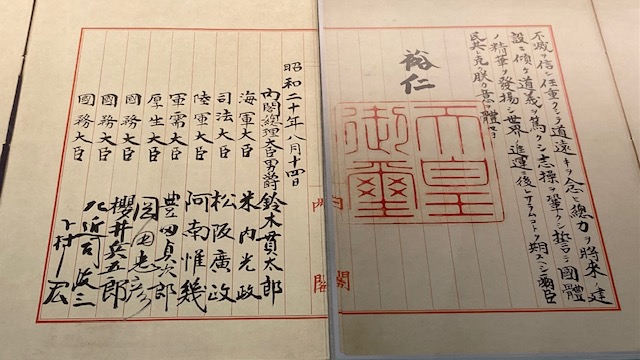 不滅ヲ信シ任重クシテ道遠キヲ念ヒ總力ヲ將來ノ建
設ニ傾ケ道義ヲ篤クシ志操ヲ鞏クシ誓テ國體
ノ精華ヲ發揚シ世界ノ進運ニ後レサラムコトヲ期スヘシ爾臣
民其レ克ク朕カ意ヲ體セヨ
裕仁
天皇
御璽
内閣
昭和二十年八月十四日
内閣總理大臣男爵 鈴木貫太郎
海軍大臣 米内光政
司法大臣 松阪廣政
陸軍大臣 阿南惟幾
軍需大臣 豊田貞次郎
厚生大臣 岡田忠彦
國務大臣 櫻井兵五郎
國務大臣 左近司政三
國務大臣 下村宏